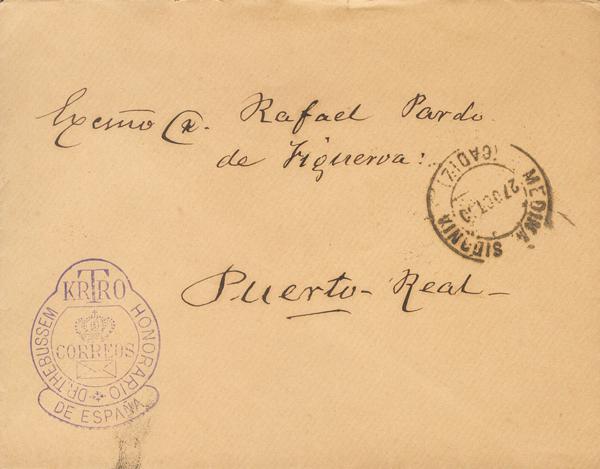 Excmo Sr. Rafael Pardo
de Figueroa:
Puerto-Real-
MEDINA SIDONIA
(CADIZ)
27 OCT
KRTRO
HONORARIO
DR. THEBUSSEM
CORREOS
DE ESPAÑA